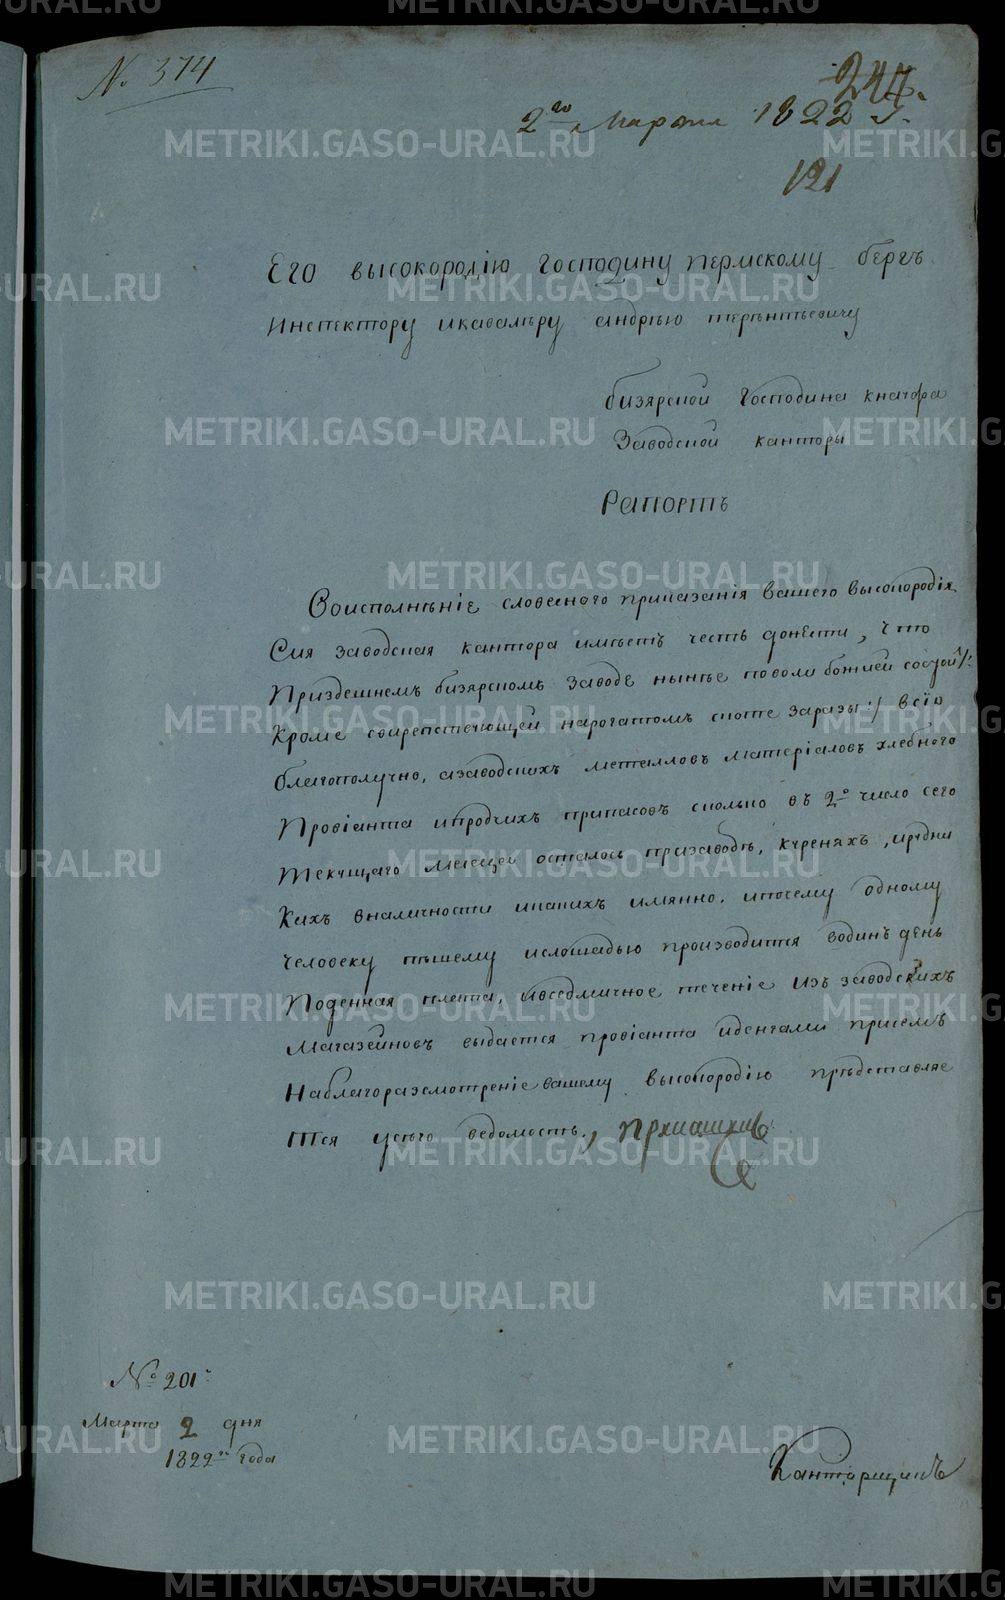 № 374
247.
2го Марта 1822 г.
121
Его высокородію господину пермскому бергъ
Инспектору икавалѣру андрѣю терѣнтьевичу
бизярской Господина кнауфа
Заводской канторы
Рапортъ
Воисполнѣніе словесного приказанія вашего высокородія
Сия заводская кантора имѣетъ честь донести, что
Приздешнемъ бизярскомъ заводе нынѣе поволи божией состои /:
Кроме свирепствующей нарогатомъ скоте заразы :/ всіо
благополучно, азаводскихъ металловъ матеріаловъ хлебного
Провіанта ипродчихъ припасовъ сколько въ 2е число сего
текущаго месеца осталось призаводѣ, куреняхъ, ирудни
Кахъ вналичности икакихъ имянно. ипочему одному
человеку пѣшему ислошадью производится водинъ день
Поденная плата, ивседмичное течение изъ заводскихъ
Магазейновъ выдается провіанта иденгами присемъ
Наблагоразсмотреніе вашему высокородію прѣдставляе
тся усего ведомость,
№ 201й
Марта 2 дня
1822го года
Канторщикъ
METRIKI.GASO-URAL.RU